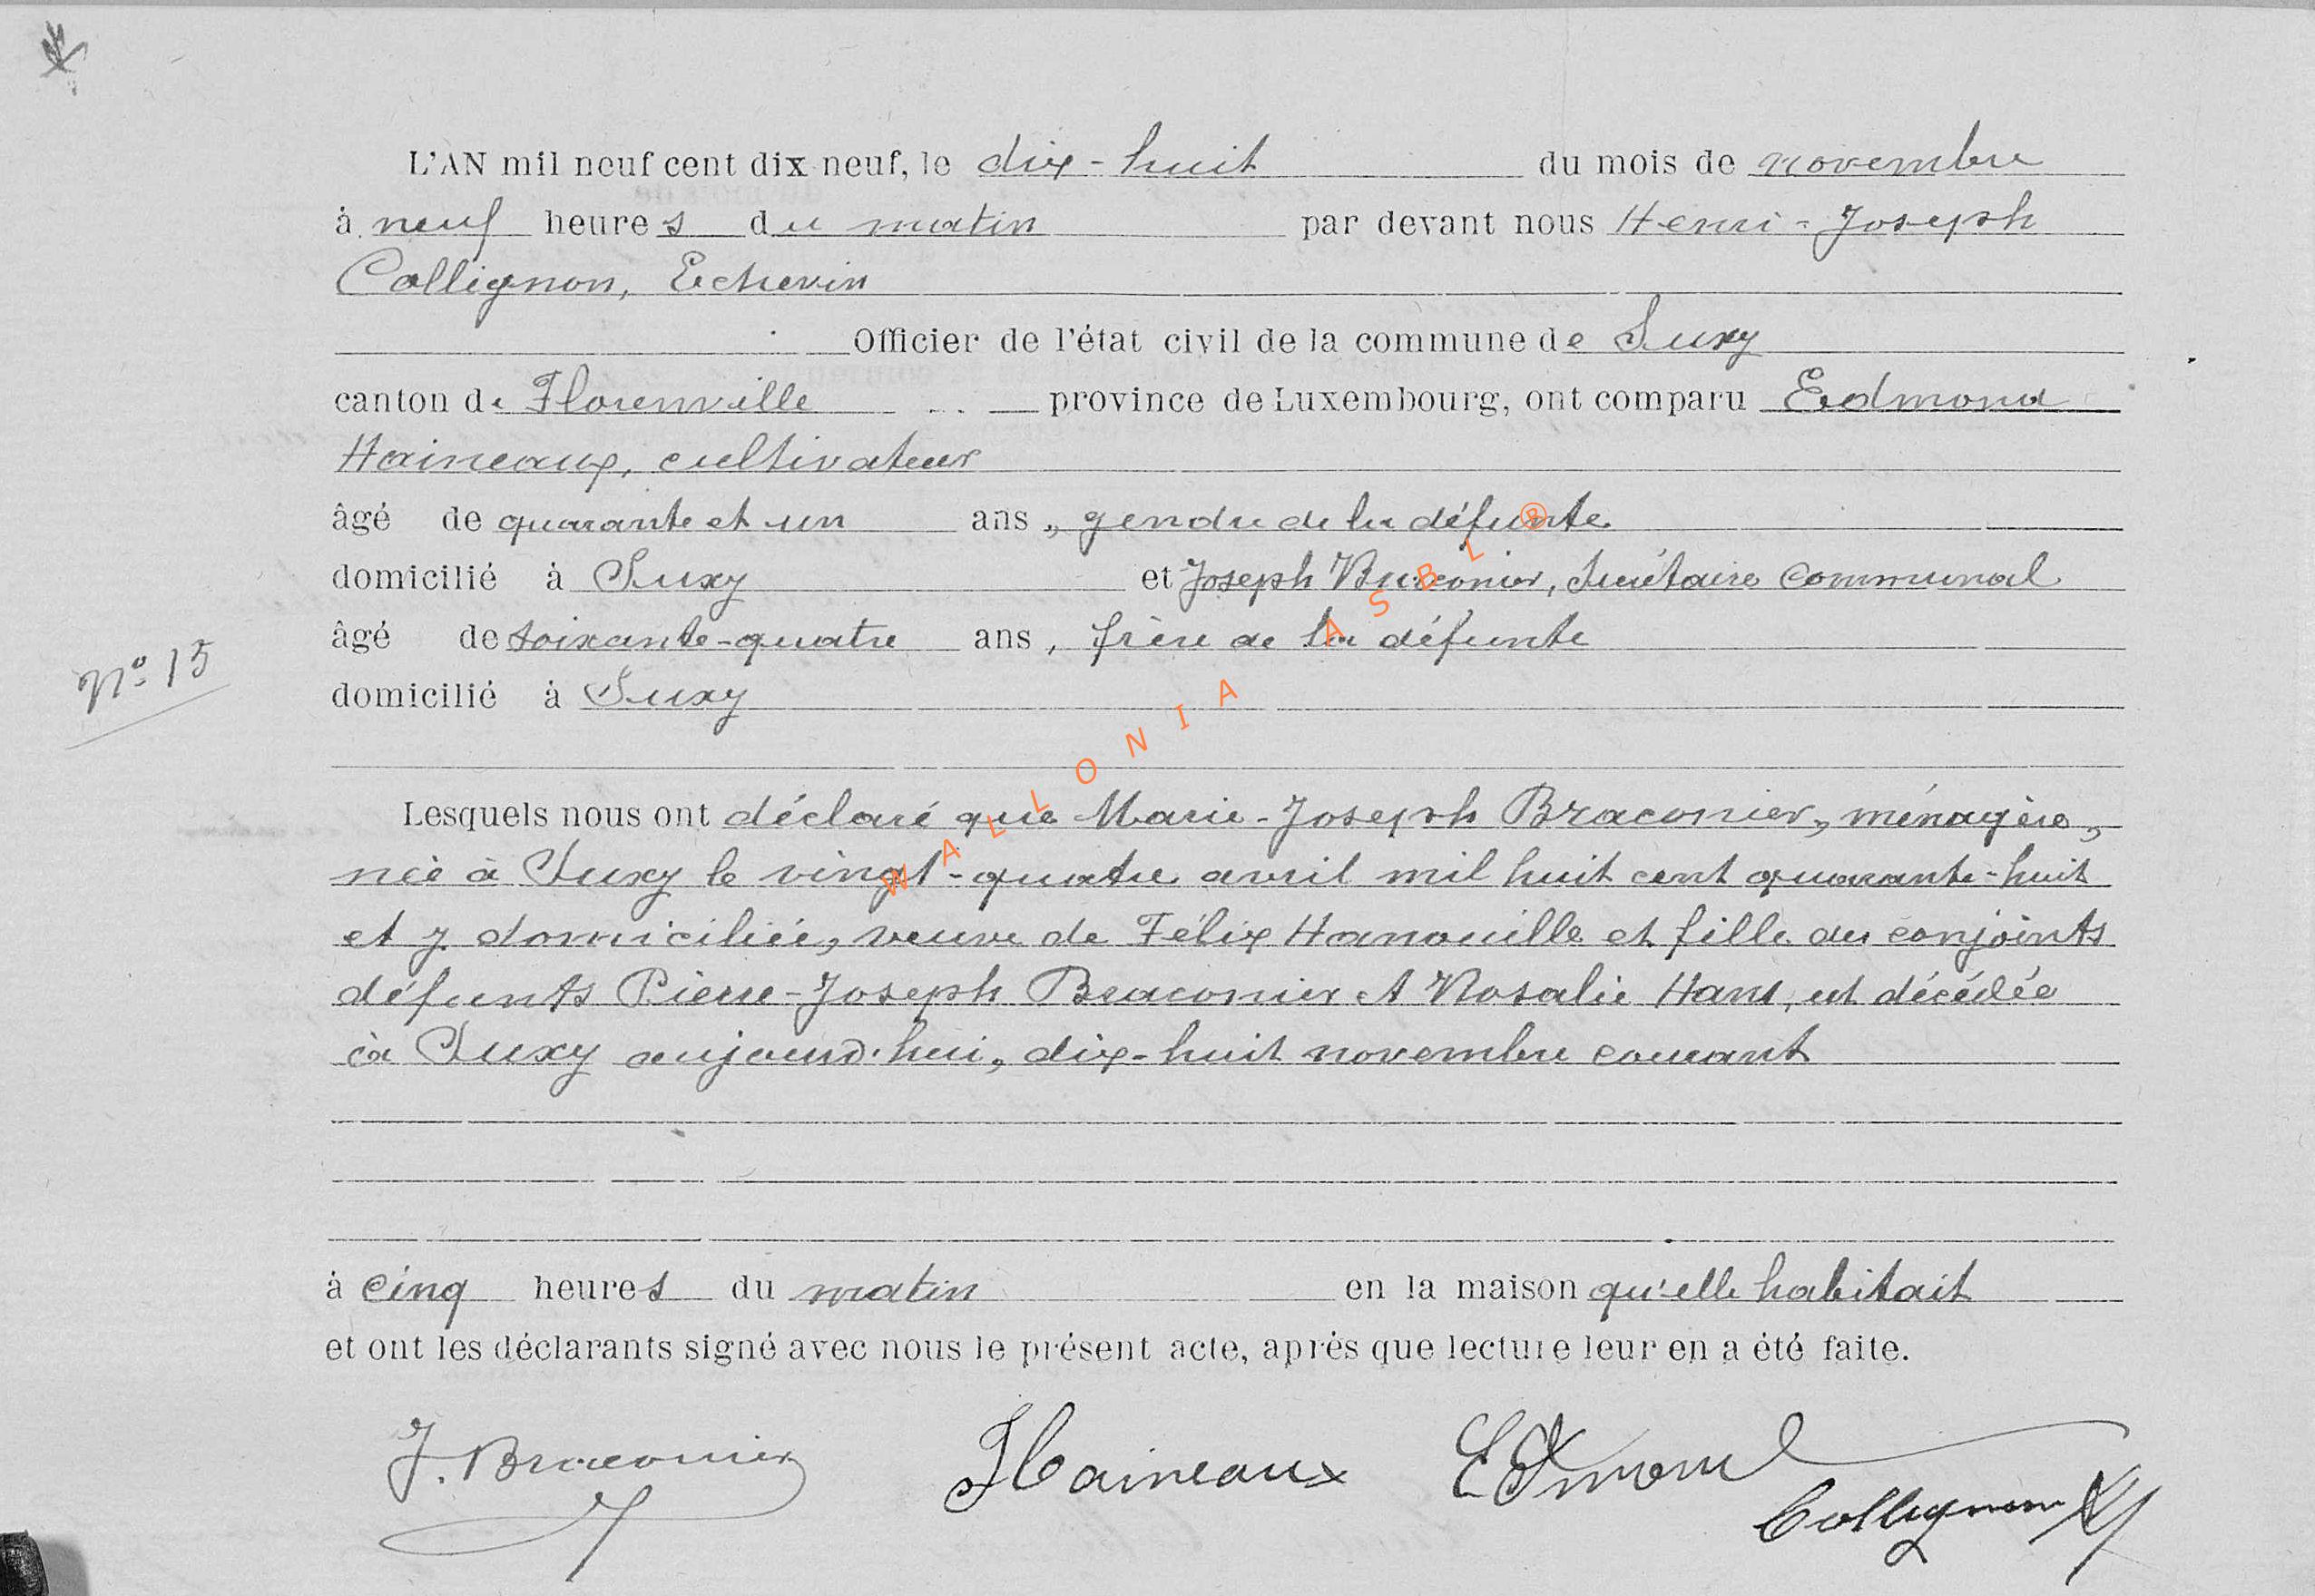 L'AN mil neuf cent dix neuf, le dix-huit du mois de novembre
à neuf heures du matin par devant nous Henri-Joseph
Collignon, Echevin
Officier de l'état civil de la commune de Suxy
canton de Florenville province de Luxembourg, ont comparu Edmond
Haineaux, cultivateur
âgé de quarante et un ans, gendre de la défunte
domicilié à Suxy et Joseph Braconier, Secrétaire communal
âgé de soixante-quatre ans, frère de la défunte
Nº 15
domicilié à Suxy
Lesquels nous ont déclaré que Marie-Joseph Braconier, ménagère,
née à Suxy le vingt-quatre avril mil huit cent quarante-huit
et y domiciliée, veuve de Félix Hanouille et fille des conjoints
défunts Pierre-Joseph Braconier et Rosalie Hans, est décédée
à Suxy aujourd'hui, dix-huit novembre courant
à cinq heures du matin en la maison qu'elle habitait
et ont les déclarants signé avec nous le présent acte, après que lecture leur en a été faite.
J. Braconier Haineaux Edmond
Collignon HJ
WALLONIA ASBL ®